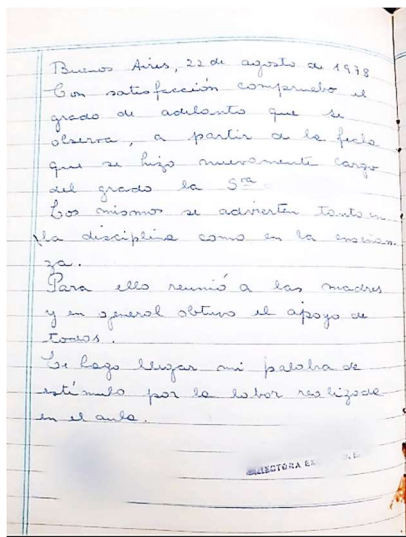 Buenos Aires, 22 de agosto de 1978
Con satisfacción compruebo el
grado de adelanto que se
observa, a partir de la fecha
que se hizo nuevamente cargo
del grado la Sra.
Los mismos se advierten tanto en
la disciplina como en la enseñan
za.
Para ello reunió a las madres
y en general obtuvo el apoyo de
todos.
Le hago llegar mi palabra de
estímulo por la labor realizada
en el aula.
DIRECTORA